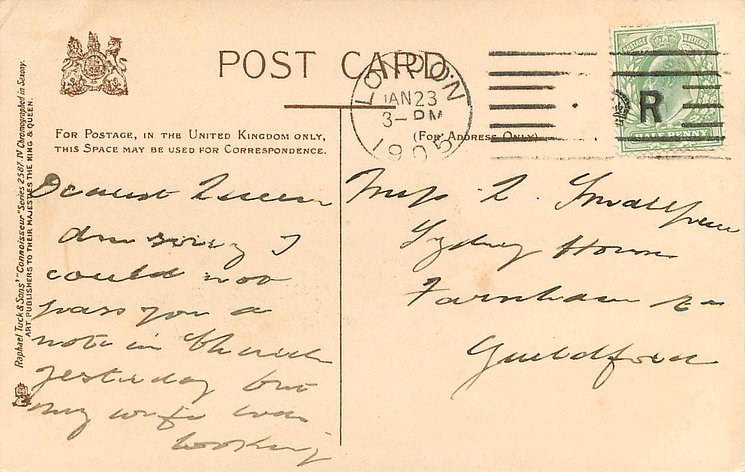 POST CARD
FOR POSTAGE, IN THE UNITED KINGDOM ONLY,
THIS SPACE MAY BE USED FOR CORRESPONDENCE.
(FOR ADDRESS ONLY)
LONDON
JAN 23
3 - PM
1905
R
HALF PENNY
Raphael Tuck & Sons' "Connoisseur" Series 2567. IV Chromographed in Saxony.
ART PUBLISHERS TO THEIR MAJESTIES THE KING & QUEEN.
Dearest Queen
Am sorry I
could not
pass you a
note in Church
yesterday but
my wife was
looking
Miss L. Smallpiece
Sydney House
Farnham Rd
Guildford